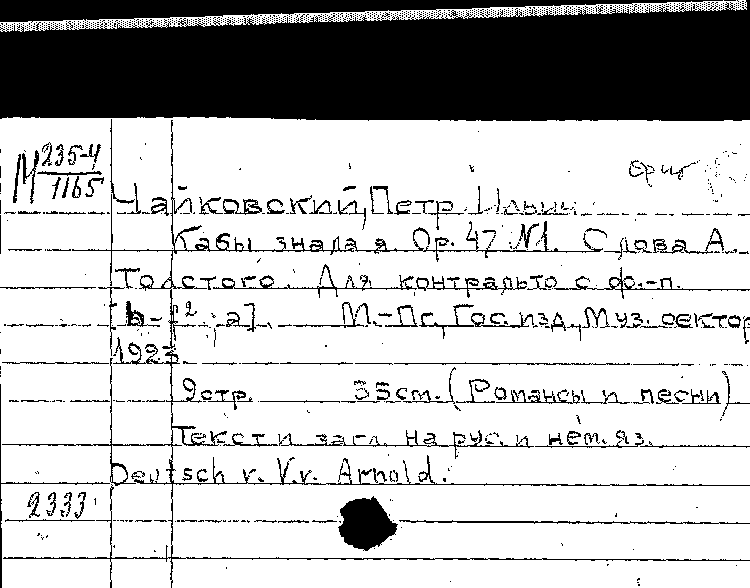 М 235-4
1165
ориг
Чайковский, Петр Ильич
Кабы знала я. Op. 47 №1. Слова А.
Толстого. Для контральто с ф.-п.
[b- ² : a]. М.-Пг, Гос. изд., Муз. сектор
1923.
9 стр. 35 см. (Романсы и песни)
Текст и загл. на рус. и нем. яз.
Deutsch v. V.v. Arnold.
2333